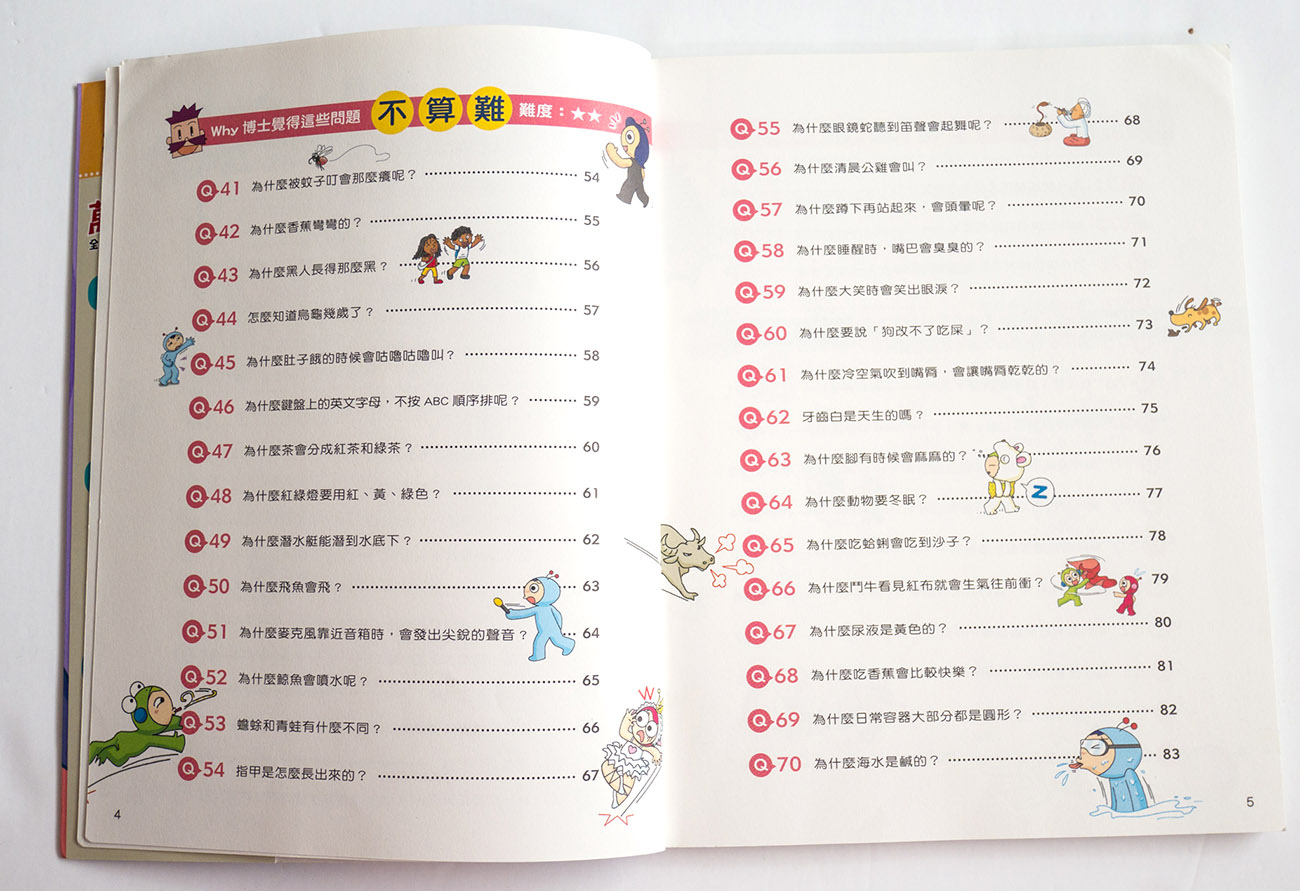 Why 博士覺得這些問題 不算難 難度：★★
Q41 為什麼被蚊子叮會那麼癢呢？ 54
Q42 為什麼香蕉彎彎的？ 55
Q43 為什麼黑人長得那麼黑？ 56
Q44 怎麼知道烏龜幾歲了？ 57
Q45 為什麼肚子餓的時候會咕嚕咕嚕叫？ 58
Q46 為什麼鍵盤上的英文字母，不按 ABC 順序排呢？ 59
Q47 為什麼茶會分成紅茶和綠茶？ 60
Q48 為什麼紅綠燈要用紅、黃、綠色？ 61
Q49 為什麼潛水艇能潛到水底下？ 62
Q50 為什麼飛魚會飛？ 63
Q51 為什麼麥克風靠近音箱時，會發出尖銳的聲音？ 64
Q52 為什麼鯨魚會噴水呢？ 65
Q53 蟾蜍和青蛙有什麼不同？ 66
Q54 指甲是怎麼長出來的？ 67
4
Q55 為什麼眼鏡蛇聽到笛聲會起舞呢？ 68
Q56 為什麼清晨公雞會叫？ 69
Q57 為什麼蹲下再站起來，會頭暈呢？ 70
Q58 為什麼睡醒時，嘴巴會臭臭的？ 71
Q59 為什麼大笑時會笑出眼淚？ 72
Q60 為什麼要說「狗改不了吃屎」？ 73
Q61 為什麼冷空氣吹到嘴脣，會讓嘴脣乾乾的？ 74
Q62 牙齒白是天生的嗎？ 75
Q63 為什麼腳有時候會麻麻的？ 76
Q64 為什麼動物要冬眠？ 77
Z
Q65 為什麼吃蛤蜊會吃到沙子？ 78
Q66 為什麼鬥牛看見紅布就會生氣往前衝？ 79
Q67 為什麼尿液是黃色的？ 80
Q68 為什麼吃香蕉會比較快樂？ 81
Q69 為什麼日常容器大部分都是圓形？ 82
Q70 為什麼海水是鹹的？ 83
5